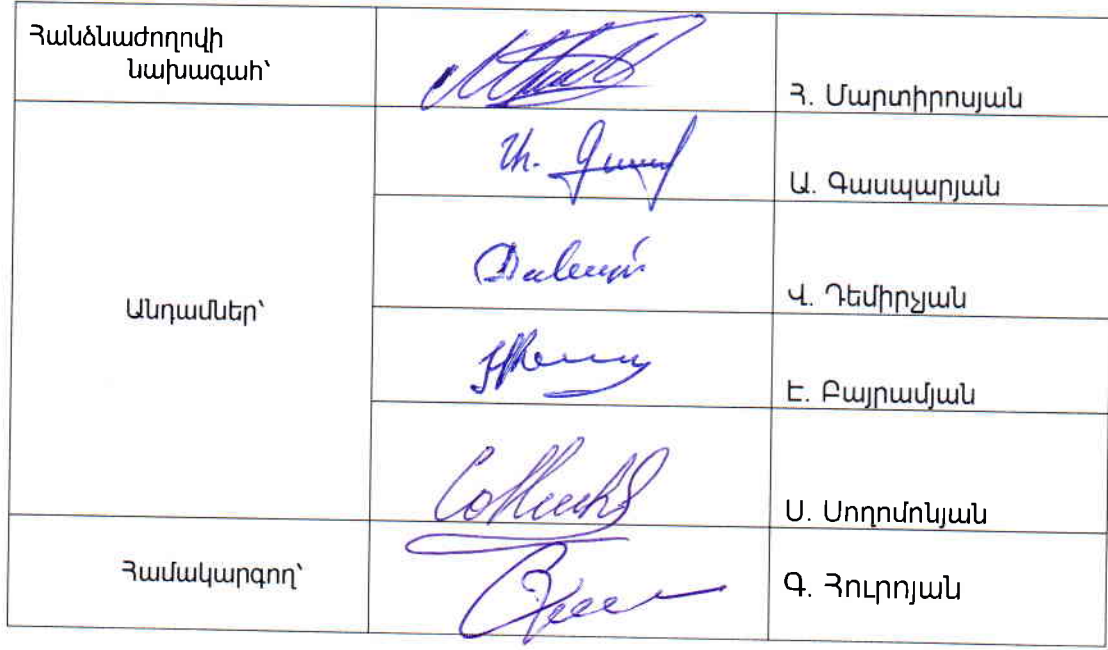 Հանձնաժողովի
նախագահ՝
Հ. Մարտիրոսյան
Ա. Գասպարյան
Անդամներ՝
Վ. Դեմիրչյան
Է. Բայրամյան
Ս. Սողոմոնյան
Համակարգող՝
Գ. Հուրոյան